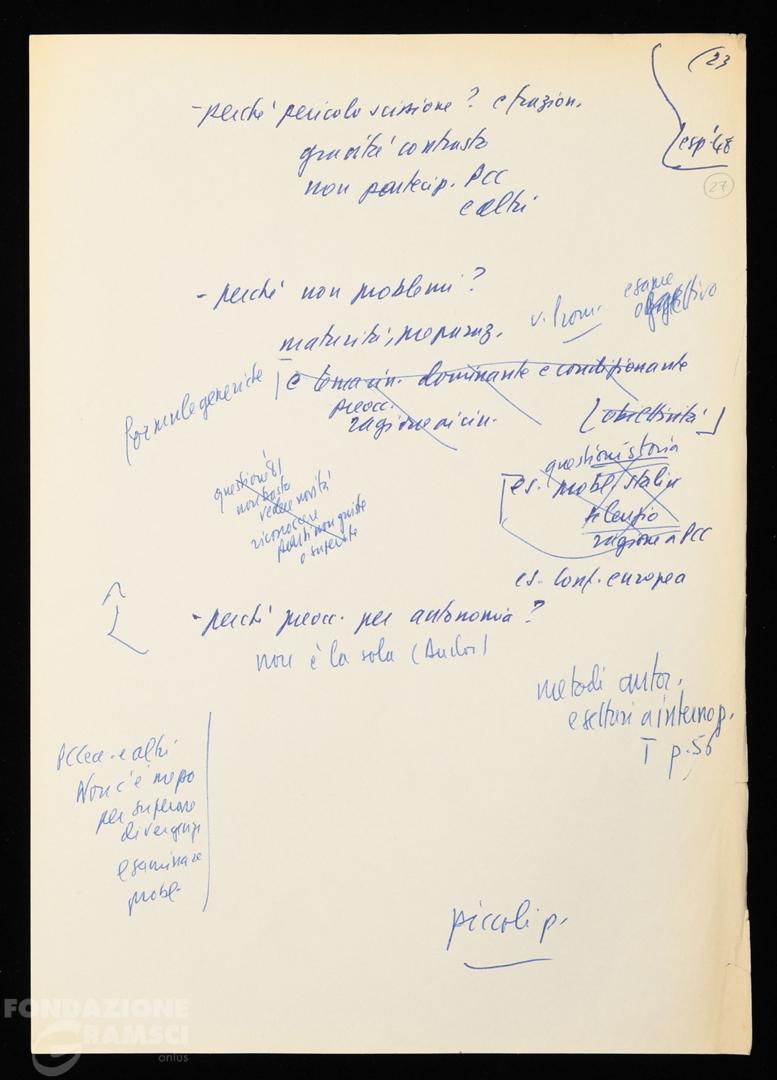 (23
esp. '48
27
- perché pericolo scissione? e frazion.
gravità contrasto
non partecip. PCC
e altri
- perché non problemi?
esame
v. Prom.
maturità, preparaz.
formule generiche
è tematica dominante e condizionante
preocc.
ragione vicin.
[obiettività]
questioni storia
es. probl. Stalin
silenzio
ragione a PCC
questioni di
contrasto
vedere novità
riconoscere
punti non giusti
o superati
es. Conf. europea
- perché preocc. per autonomia?
non è la sola
metodi autor.
e settari a intern
I p. 56
PCC ecc. e altri
Non c'è mezzo
per superare
divergenze
esaminare
probl.
piccoli p.
FONDAZIONE
GRAMSCI
onlus